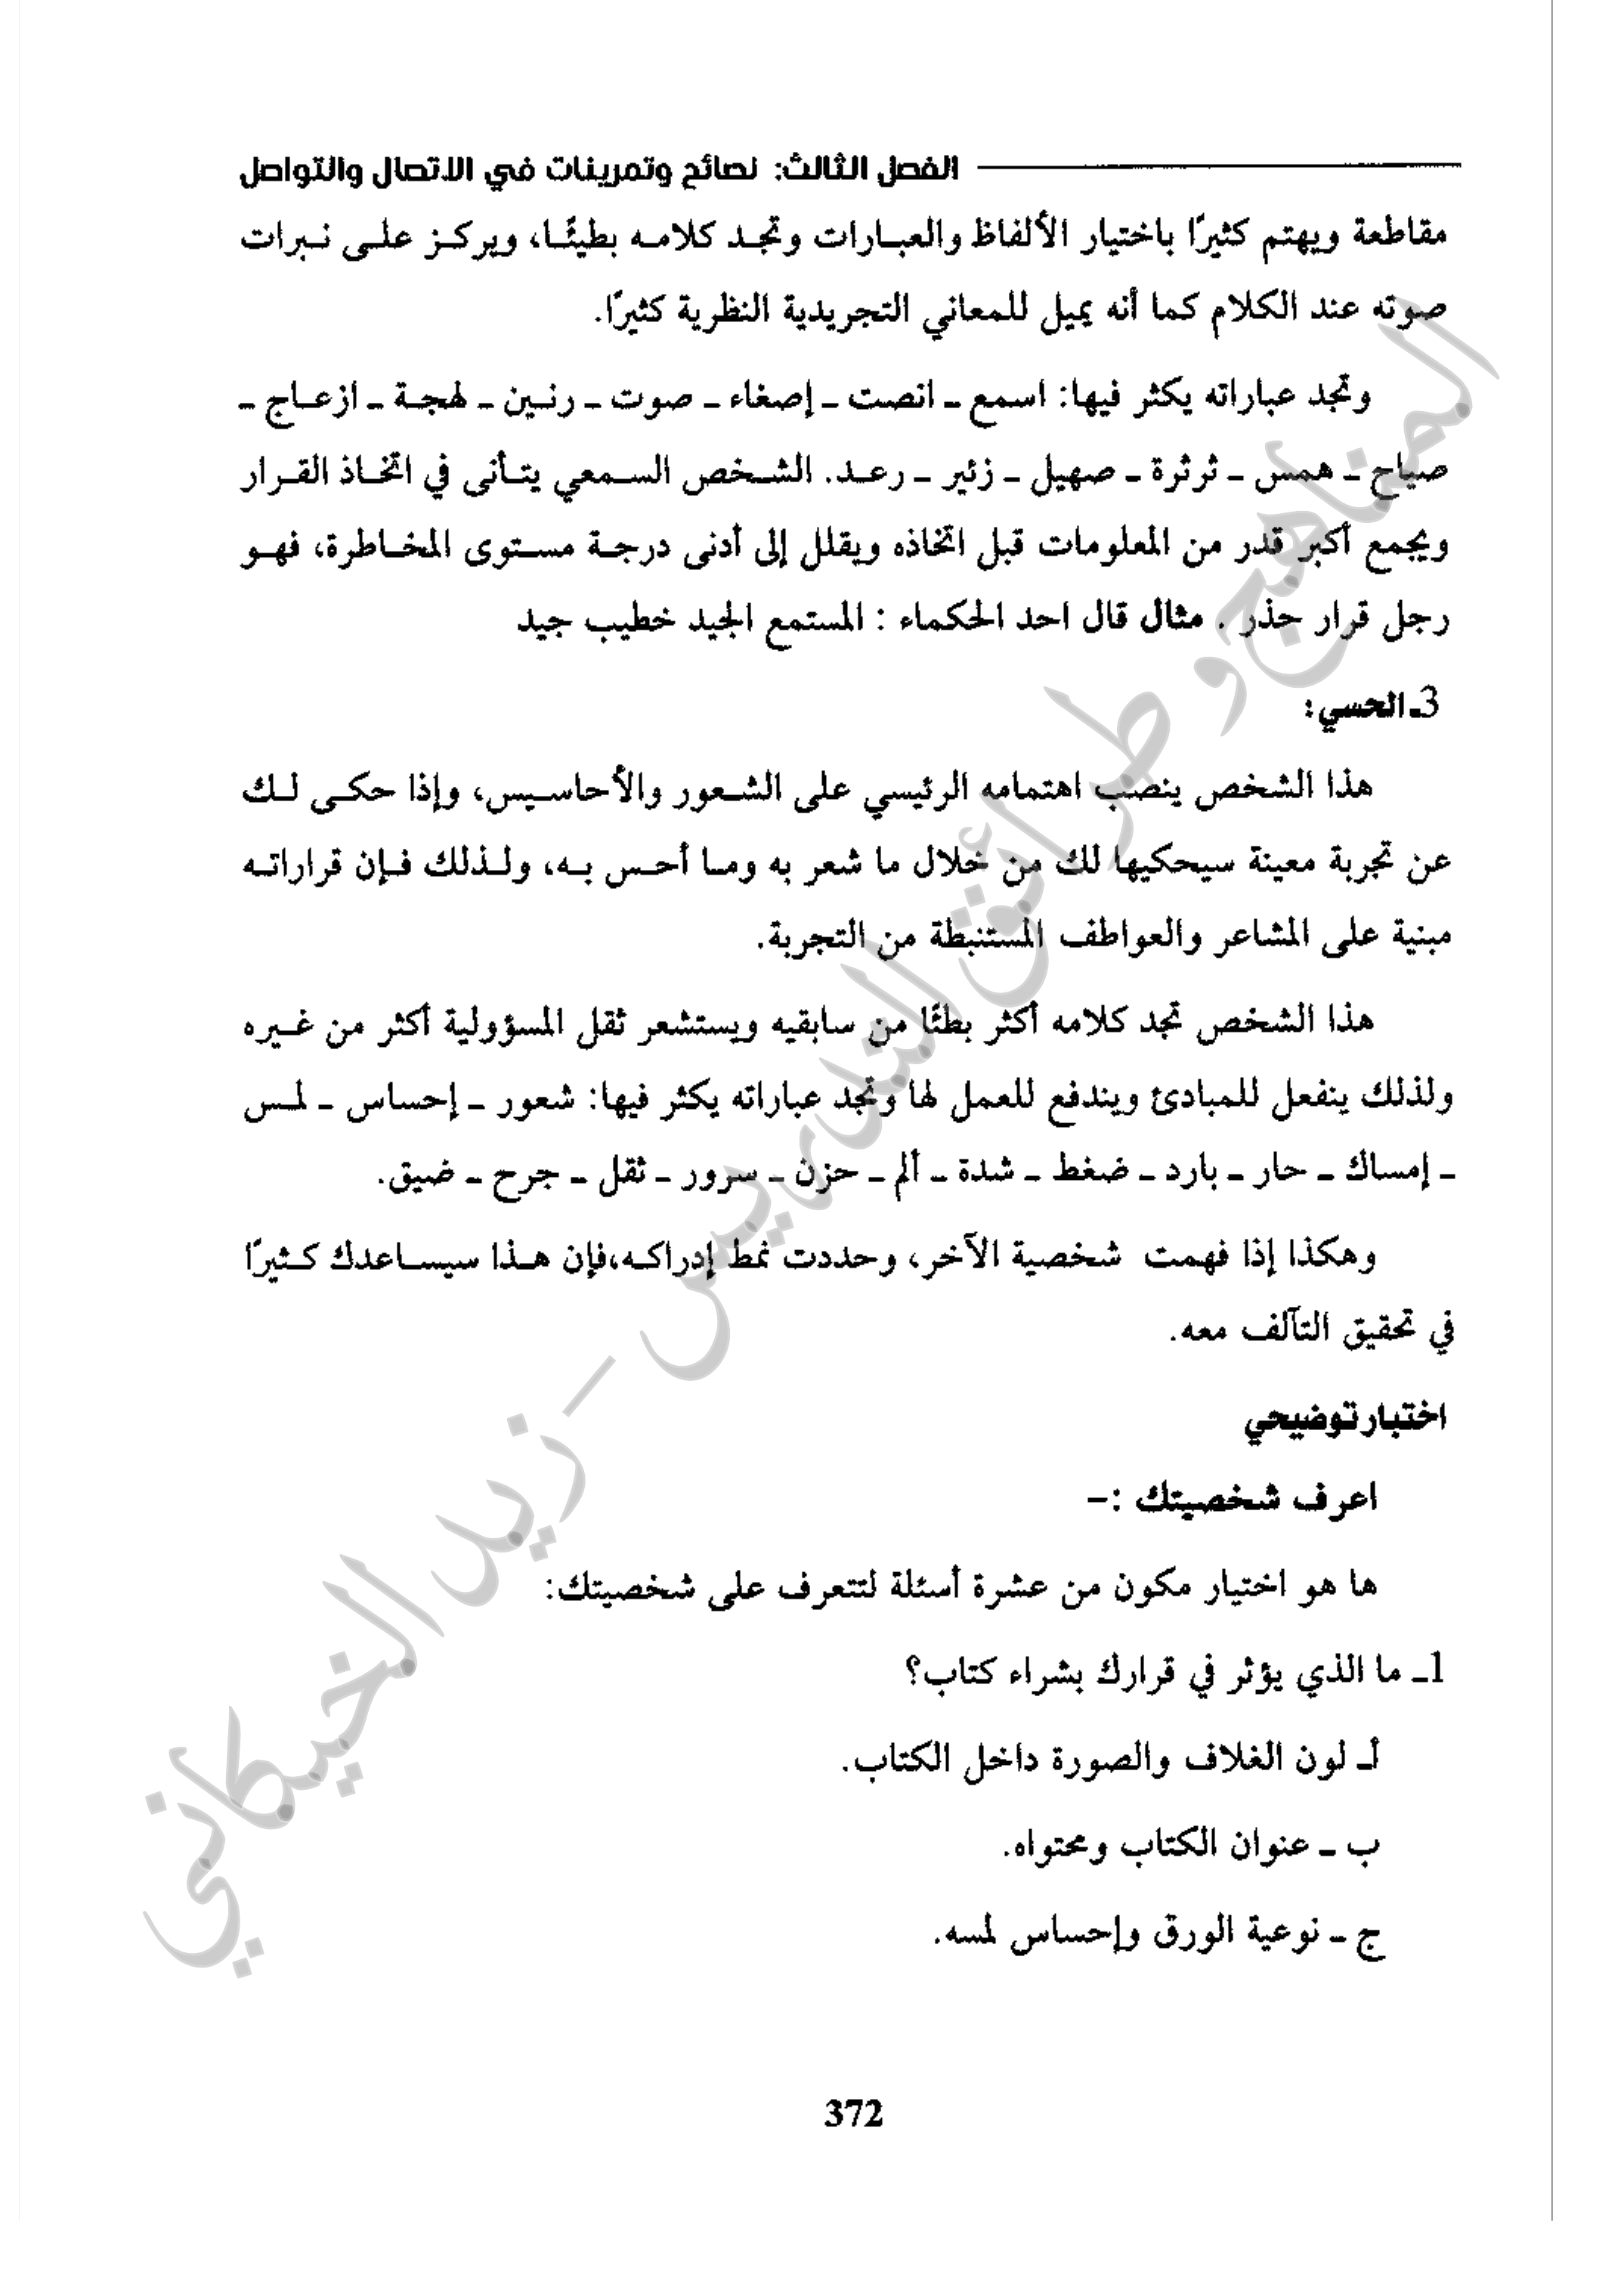 الفصل الثالث: نصائح وتمرينات في الاتصال والتواصل
مقاطعة ويهتم كثيرًا باختيار الألفاظ والعبارات وتجد كلامه بطيئًا، ويركز على نبرات
صوته عند الكلام كما أنه يميل للمعاني التجريدية النظرية كثيرًا.
وتجد عباراته يكثر فيها: اسمع ـ انصت ـ إصغاء ـ صوت ـ رنين ـ لهجة ـ ازعاج ـ
صياح ـ همس ـ ثرثرة ـ صهيل ـ زئير ـ رعد. الشخص السمعي يتأنى في اتخاذ القرار
ويجمع أكبر قدر من المعلومات قبل اتخاذه ويقلل إلى أدنى درجة مستوى المخاطرة، فهو
رجل قرار حذر . مثال قال احد الحكماء : المستمع الجيد خطيب جيد
3ـ الحسي:
هذا الشخص ينصب اهتمامه الرئيسي على الشعور والأحاسيس، وإذا حكى لك
عن تجربة معينة سيحكيها لك من خلال ما شعر به وما أحس به، ولذلك فإن قراراته
مبنية على المشاعر والعواطف المستنبطة من التجربة.
هذا الشخص تجد كلامه أكثر بطئًا من سابقيه ويستشعر ثقل المسؤولية أكثر من غيره
ولذلك ينفعل للمبادئ ويندفع للعمل لها وتجد عباراته يكثر فيها: شعور ـ إحساس ـ لمس
ـ إمساك ـ حار ـ بارد ـ ضغط ـ شدة ـ ألم ـ حزن ـ سرور ـ ثقل ـ جرح ـ ضيق.
وهكذا إذا فهمت شخصية الآخر، وحددت نمط إدراكه،فإن هذا سيساعدك كثيرًا
في تحقيق التآلف معه.
اختبار توضيحي
اعرف شخصيتك :–
ها هو اختيار مكون من عشرة أسئلة لتتعرف على شخصيتك:
1ـ ما الذي يؤثر في قرارك بشراء كتاب؟
أـ لون الغلاف والصورة داخل الكتاب.
ب ـ عنوان الكتاب ومحتواه.
ج ـ نوعية الورق وإحساس لمسه.
372
المناهج وطرائق التدريس – زيد الخيكاني